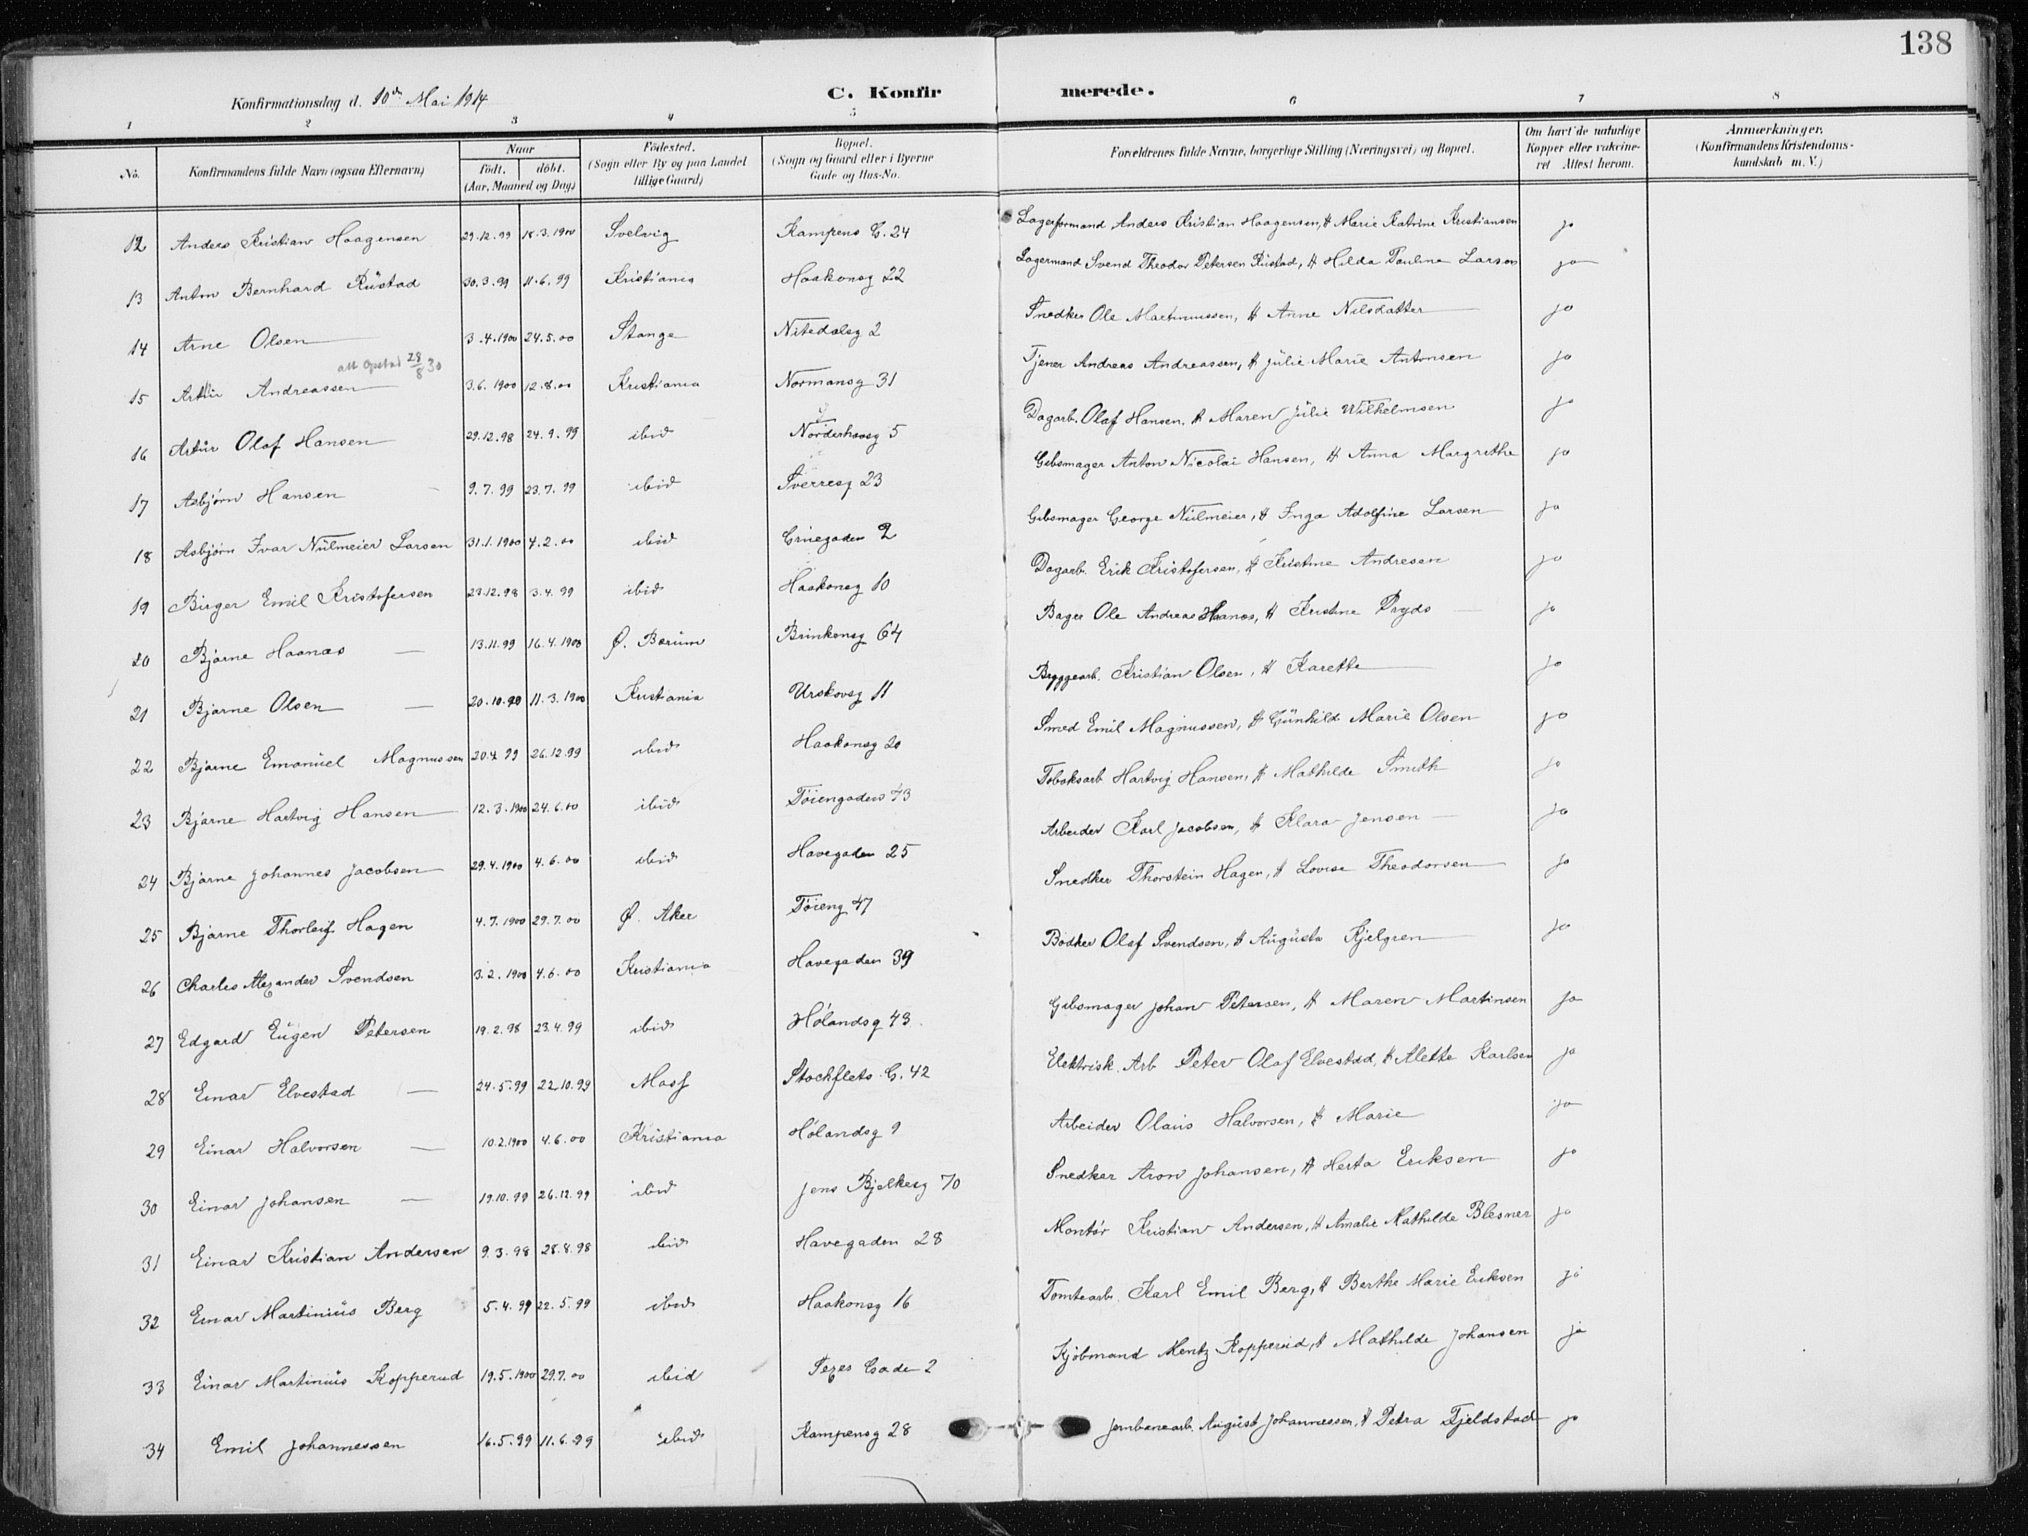 138
Konfirmationsdag d. 10de Mai 1914
C. Konfirmerede.
1 2 3 4 5 6 7 8
No. Konfirmandens fulde Navn (ogsaa Efternavn) Naar födt. döbt. (Aar, Maaned og Dag) Födested. (Sogn eller By og paa Landet tillige Gaard) Bopæl. (Sogn og Gaard eller i Byerne Gade og Hus-No. Forældrenes fulde Navne, borgerlige Stilling (Næringsvei) og Bopæl. Om havt de naturlige Kopper eller vaccineret Attest herom. Anmærkninger. (Konfirmandens Kristendomskundskab m. V.)
12 Anders Kristian Haagensen 29.12.99 18.3.1900 Svelvig Kampens G. 24 Lagerformand Anders Kristian Haagensen, H Marie Katrine Kristiansen ja
13 Anton Bernhard Rüstad 30.3.99 11.6.99 Kristiania Haakonsg 22 Lagermand Svend Theodor Petersen Rüstad, H Hilda Paulina Larsen ja
14 Arne Olsen 3.4.1900 24.5.00 Stange Nitedalsg 2 Snedker Ole Martinussen, H Anne Nilsdatter ja
att Opstad 28/8 30
15 Artür Andreassen 3.6.1900 12.8.00 Kristiania Normansg 31 Tjener Andreas Andreassen, H Julie Marie Antonsen ja
16 Artür Olaf Hansen 29.12.98 24.9.99 ibid Norderhovsg 5 Dagarb. Olaf Hansen, H Maren Jülie Wilhelmsen ja
17 Asbjørn Hansen 9.7.99 23.7.99 ibid Sverresg 23 Gibsmager Anton Nicolai Hansen, H Anna Margrethe ja
18 Asbjørn Ivar Nülmeier Larsen 31.1.1900 4.2.00 ibid Grüegaden 2 Gibsmager George Nülmeier, H Inga Adolfine Larsen ja
19 Birger Emil Kristofersen 23.12.98 3.4.99 ibid Haakonsg 10 Dagarb. Erik Kristofersen, H Kristine Andresen ja
20 Bjarne Haanæs 13.11.99 16.4.1900 Ø. Bærum Brinkensg 64 Bager Ole Andreas Haanæs, H Kristine Pryds ja
21 Bjarne Olsen 20.10.99 11.3.1900 Kristiania Urskovsg 11 Byggearb. Kristian Olsen, H Karette ja
22 Bjarne Emanüel Magnussen 20.4.99 26.12.99 ibid Haakonsg 20 Smed Emil Magnussen, H Günhild Marie Olsen ja
23 Bjarne Hartvig Hansen 12.3.1900 24.6.00 ibid Tøiengaden 43 Tobaksarb Hartvig Hansen, H Mathilde Smith ja
24 Bjarne Johannes Jacobsen 29.4.1900 4.6.00 ibid Havegaden 25 Arbeider Karl Jacobsen, H Klara Jensen ja
25 Bjarne Thorleif Hagen 4.7.1900 29.7.00 Ø. Aker Tøieng 47 Snedker Thorstein Hagen, H Lovise Theodorsen ja
26 Charles Alexander Svendsen 3.2.1900 4.6.00 Kristiania Havegaden 39 Bødker Olaf Svendsen, H Augüsta Kjelgren ja
27 Edgard Eügen Petersen 19.2.98 23.4.99 ibid Hølandsg 43 Gibsmager Johan Petersen, H Maren Martinsen ja
28 Einar Elvestad 24.5.99 22.10.99 Moss Stockflets G. 42 Elektrisk. Arb Peter Olaf Elvestad, H Alette Karlsen ja
29 Einar Halvorsen 10.2.1900 4.6.00 Kristiania Hølandsg 9 Arbeider Olaus Halvorsen, H Marie ja
30 Einar Johansen 19.10.99 26.12.99 ibid Jens Bjelkesg 70 Snedker Aron Johansen, H Herta Eriksen ja
31 Einar Kristian Andersen 9.3.98 28.8.98 ibid Havegaden 28 Montør Kristian Andersen, H Amalie Mathilde Blesner ja
32 Einar Martiniüs Berg 5.4.99 22.5.99 ibid Haakonsg 16 Tomtearb. Karl Emil Berg, H Berthe Marie Eriksen ja
33 Einar Martiniüs Kopperud 19.5.1900 29.7.00 ibid Gade 2 Kjøbmand Mentz Kopperud, H Mathilde Johansen ja
34 Emil Johannessen 16.5.99 11.6.99 ibid Kampensg 28 Jernbanearb. August Johannessen, H Petra Fjeldstad ja